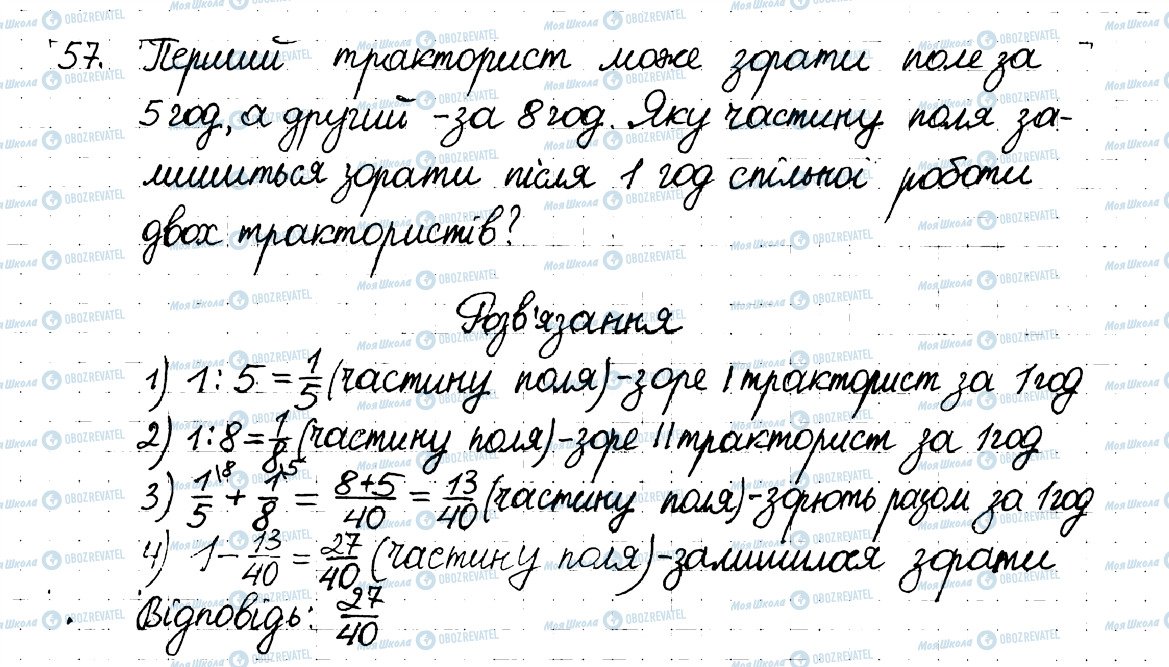 57. Перший тракторист може зорати поле за
5 год, а другий - за 8 год. Яку частину поля за-
лишиться зорати після 1 год спільної роботи
двох трактористів?
Розв'язання
1) 1 : 5 = 1/5 (частину поля) - зоре I тракторист за 1 год
2) 1 : 8 = 1/8 (частину поля) - зоре II тракторист за 1 год
3) 1/5 \8 + 1/8 \5 = (8+5)/40 = 13/40 (частину поля) - зорють разом за 1 год
4) 1 - 13/40 = 27/40 (частину поля) - залишилася зорати
Відповідь: 27/40
МояШкола OBOZREVATEL